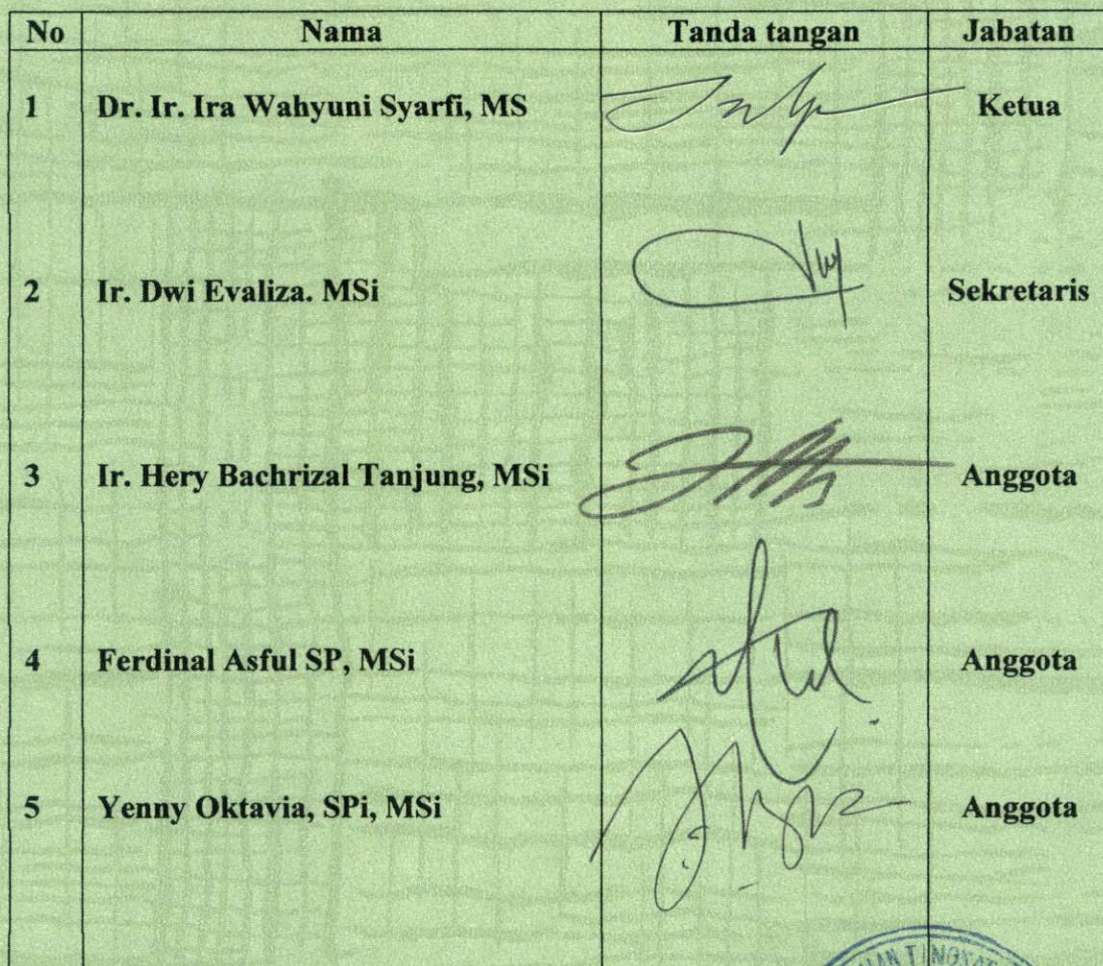 No Nama Tanda tangan Jabatan
1 Dr. Ir. Ira Wahyuni Syarfi, MS Ketua
2 Ir. Dwi Evaliza. MSi Sekretaris
3 Ir. Hery Bachrizal Tanjung, MSi Anggota
4 Ferdinal Asful SP, MSi Anggota
5 Yenny Oktavia, SPi, MSi Anggota